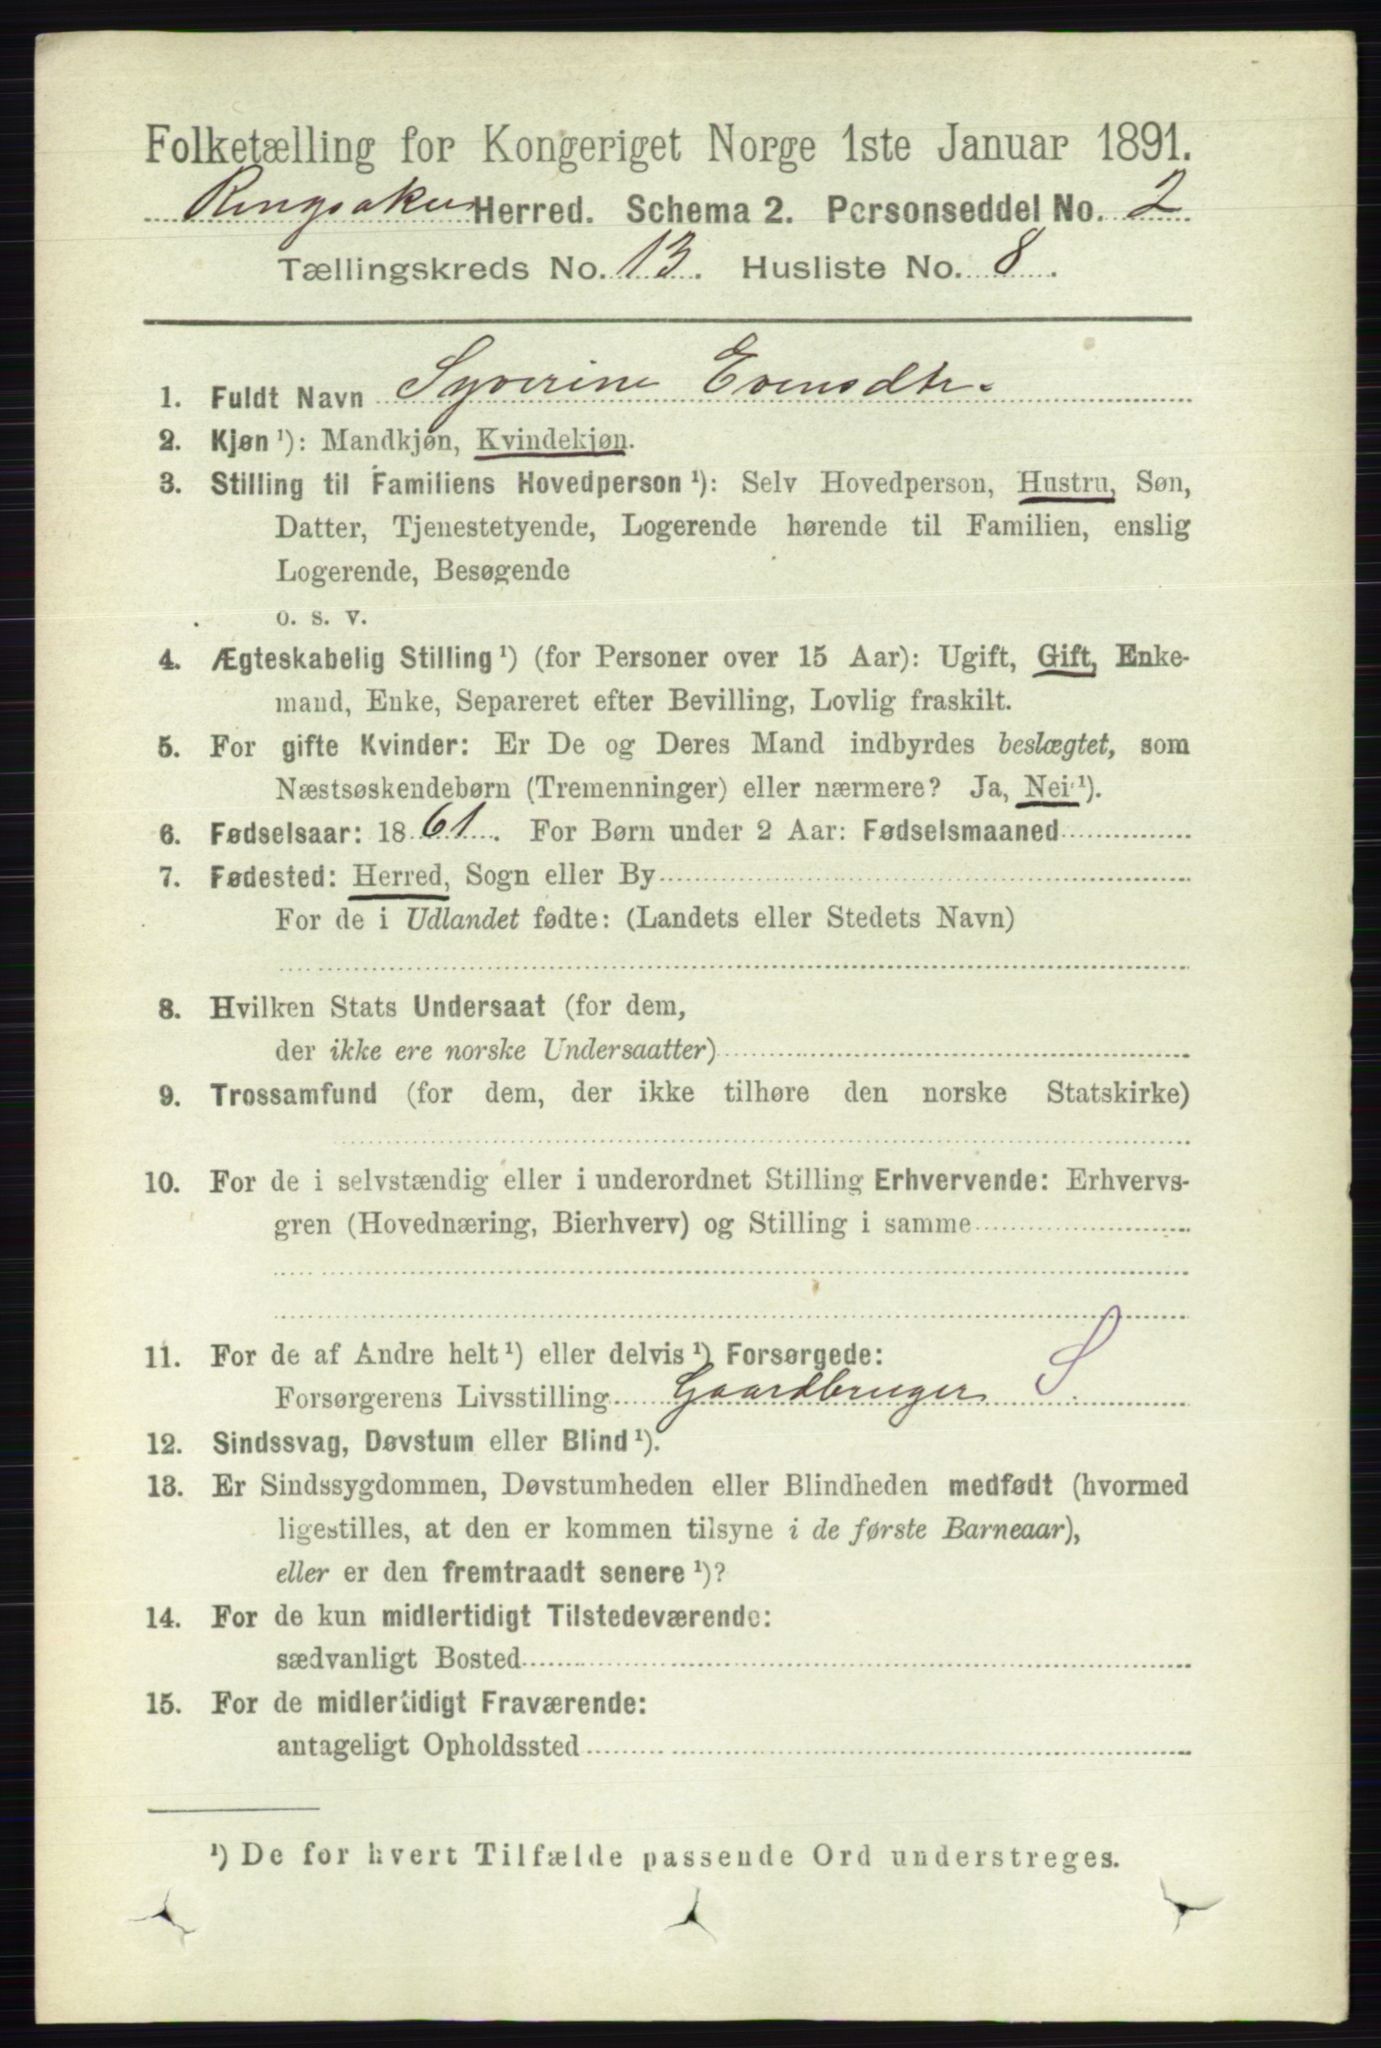 Folketælling for Kongeriget Norge 1ste Januar 1891.
Ringsaker Herred. Schema 2. Personseddel No. 2
Tællingskreds No. 13. Husliste No. 8.
1. Fuldt Navn Syverine Evensdtr.
2. Kjøn ¹): Mandkjøn, Kvindekjøn.
3. Stilling til Familiens Hovedperson ¹): Selv Hovedperson, Hustru, Søn,
Datter, Tjenestetyende, Logerende hørende til Familien, enslig
Logerende, Besøgende
o. s. v.
4. Ægteskabelig Stilling ¹) (for Personer over 15 Aar): Ugift, Gift, Enke-
mand, Enke, Separeret efter Bevilling, Lovlig fraskilt.
5. For gifte Kvinder: Er De og Deres Mand indbyrdes beslægtet, som
Næstsøskendebørn (Tremenninger) eller nærmere? Ja, Nei ¹).
6. Fødselsaar: 1861. For Børn under 2 Aar: Fødselsmaaned
7. Fødested: Herred, Sogn eller By
For de i Udlandet fødte: (Landets eller Stedets Navn)
8. Hvilken Stats Undersaat (for dem,
der ikke ere norske Undersaatter)
9. Trossamfund (for dem, der ikke tilhøre den norske Statskirke)
10. For de i selvstændig eller i underordnet Stilling Erhvervende: Erhvervs-
gren (Hovednæring, Bierhverv) og Stilling i samme
11. For de af Andre helt ¹) eller delvis ¹) Forsørgede:
Forsørgerens Livsstilling Gaardbruger S
12. Sindssvag, Døvstum eller Blind ¹).
13. Er Sindssygdommen, Døvstumheden eller Blindheden medfødt (hvormed
ligestilles, at den er kommen tilsyne i de første Barneaar),
eller er den fremtraadt senere ¹)?
14. For de kun midlertidigt Tilstedeværende:
sædvanligt Bosted
15. For de midlertidigt Fraværende:
antageligt Opholdssted
¹) De for hvert Tilfælde passende Ord understreges.